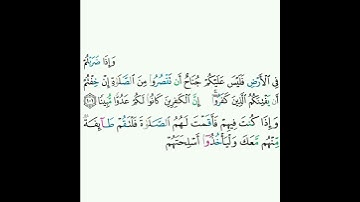 وَإِذَا ضَرَبْتُمْ
فِي ٱلْأَرْضِ فَلَيْسَ عَلَيْكُمْ جُنَاحٌ أَن تَقْصُرُوا۟ مِنَ ٱلصَّلَوٰةِ إِنْ خِفْتُمْ
أَن يَفْتِنَكُمُ ٱلَّذِينَ كَفَرُوٓا۟ ۚ إِنَّ ٱلْكَٰفِرِينَ كَانُوا۟ لَكُمْ عَدُوًّا مُّبِينًا ١٠١
وَإِذَا كُنتَ فِيهِمْ فَأَقَمْتَ لَهُمُ ٱلصَّلَوٰةَ فَلْتَقُمْ طَآئِفَةٌ
مِّنْهُم مَّعَكَ وَلْيَأْخُذُوٓا۟ أَسْلِحَتَهُمْ